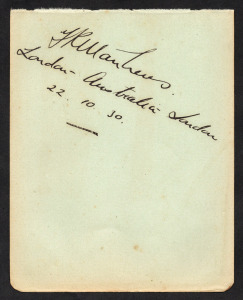 F R Matthews.
London - Australia - London
22 . 10 . 30.